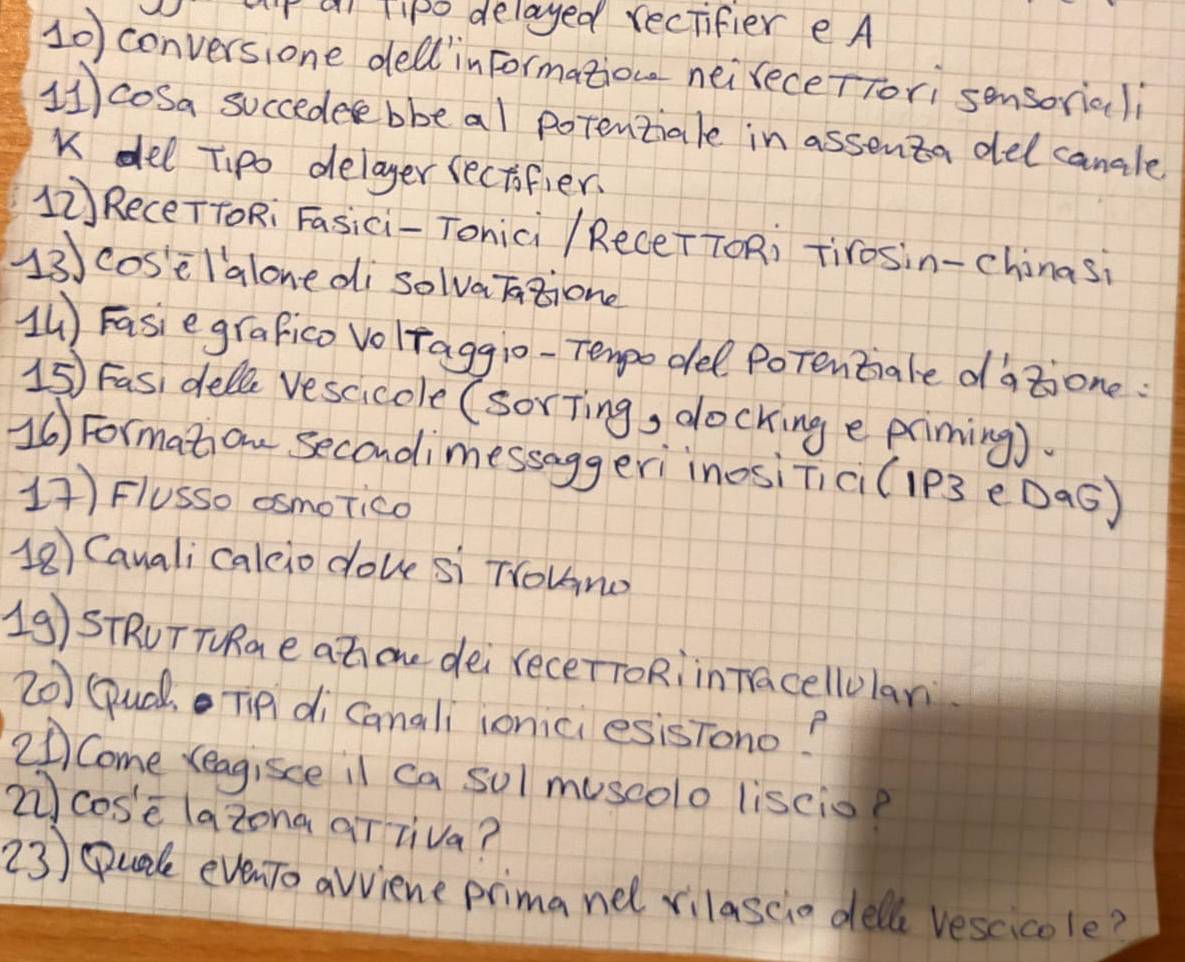 di Tipo delayed recTifier e A
10) conversione dell'informazione nei receTTori sensoriali
11) cosa succederebbe al poTenziale in assenza del canale
K del Tipo delayer recTifier.
12) ReceTTORi Fasici - Tonici / ReceTTORi Tirosin-chinasi
13) cos'è l'alone di solvaTazione
14) Fasi e grafico VolTaggio - Tempo del PoTenziale d'azione:
15) Fasi delle vescicole (sorTing, docking e priming).
16) Formazione secondi messaggeri inosiTici (IP3 e DaG)
17) Flusso osmoTico
18) Canali calcio dove si Trovano
19) STRUTTURa e azione dei receTToRi inTracellulari.
20) Quali Tipi di canali ionici esisTono?
21) Come reagisce il ca sul muscolo liscio?
22) cos'è la zona aTTiva?
23) Quale evenTo avviene prima nel rilascio delle vescicole?